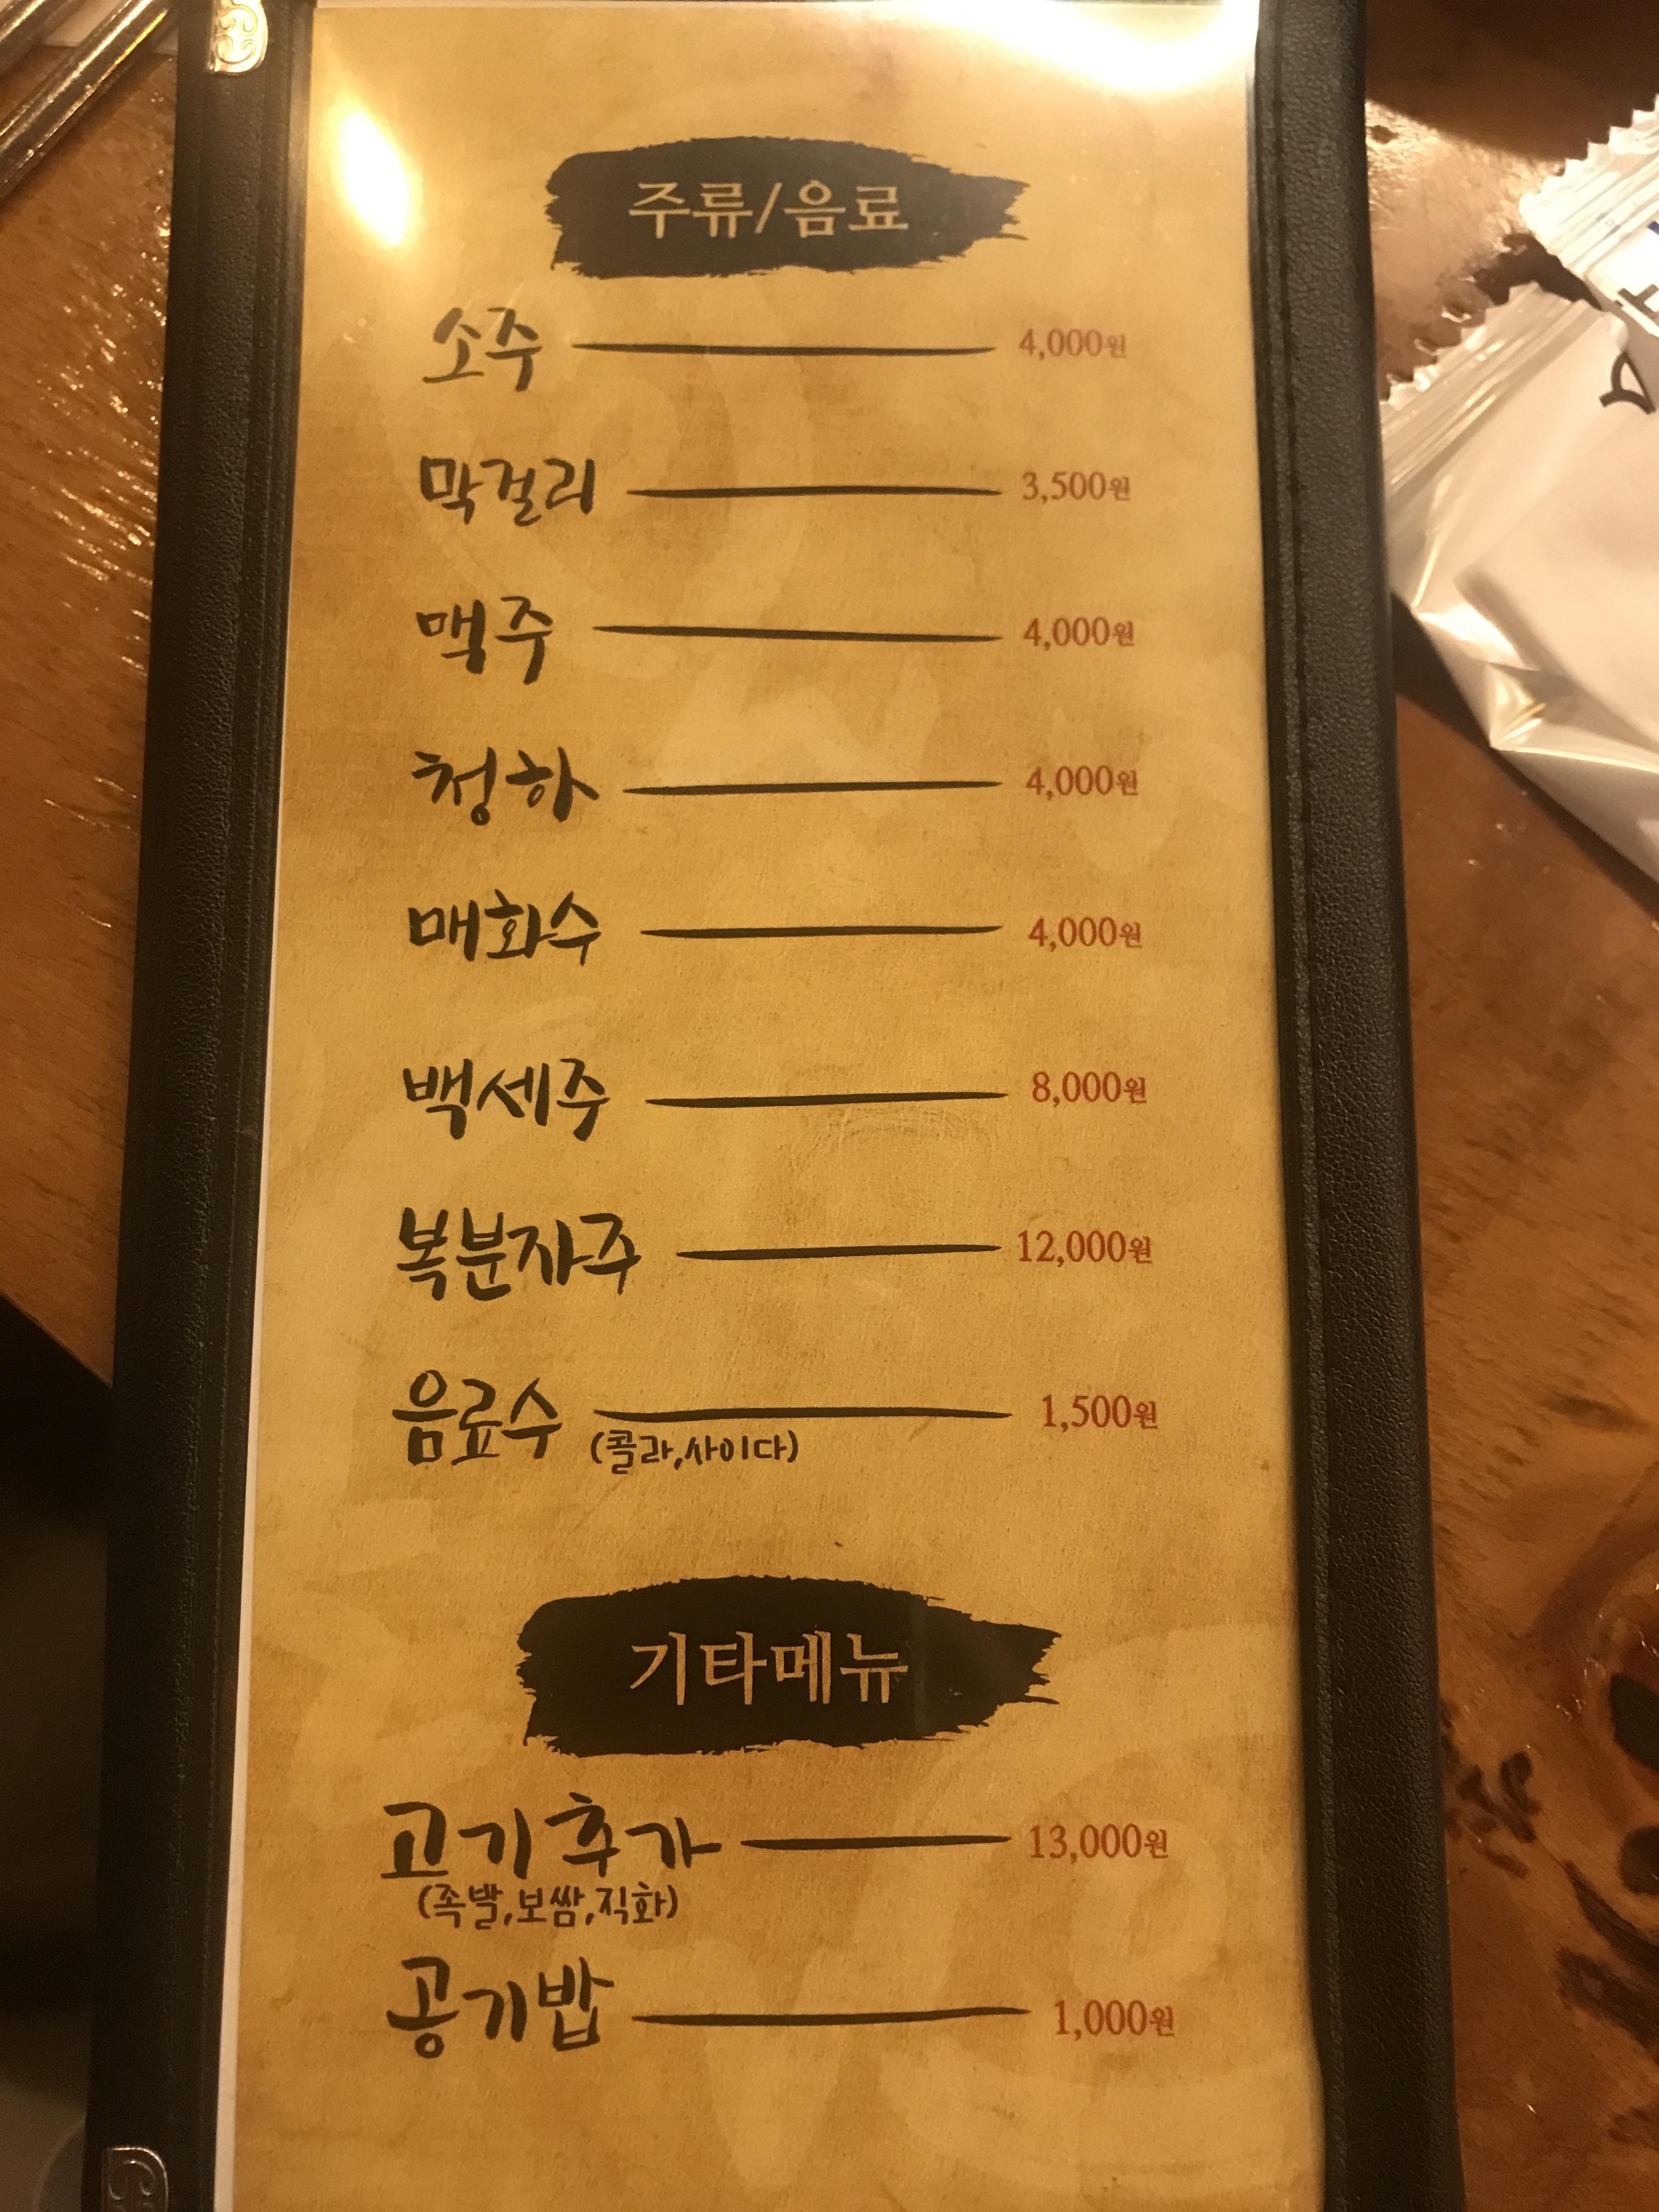 주류/음료
소주 4,000원
막걸리 3,500원
맥주 4,000원
청하 4,000원
매화수 4,000원
백세주 8,000원
복분자주 12,000원
음료수 1,500원
(콜라,사이다)
기타메뉴
고기추가 13,000원
(족발,보쌈,직화)
공기밥 1,000원